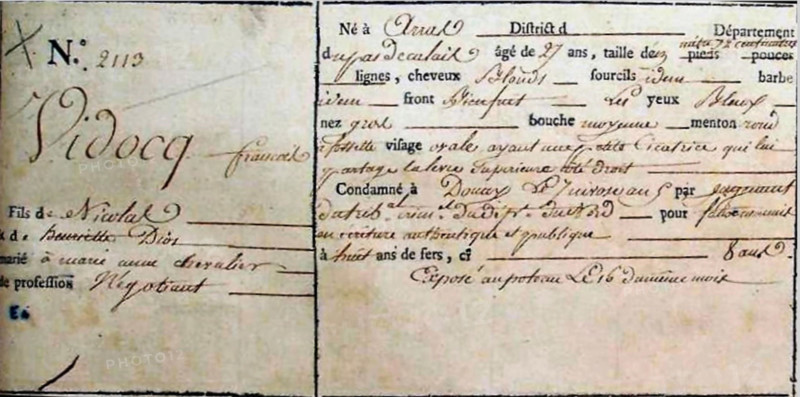 N.º 2113
Vidocq françois
Fils de Nicolas
& de henriette Dion
marié à marie anne chevalier
de profession Négotiant
Né à Arras District d Département
du pas de calais âgé de 27 ans, taille de mètre 72 centimètres pieds pouces
lignes, cheveux Blonds sourcils idem barbe
idem front Bienfait Les yeux Bleux
nez gros bouche moyenne menton rond
& fossette visage ovale ayant une petite Cicatrice qui lui
partage la levre Superieure côté droit
Condamné à Douay Le 7 nivose an 5 par jugement
du trib.al crim.el du dép.t du Nord pour faux commis
en écriture authentique et publique
à huit ans de fers, ci 8 ans
Exposé au poteau Le 16 du même mois
PHOTO12